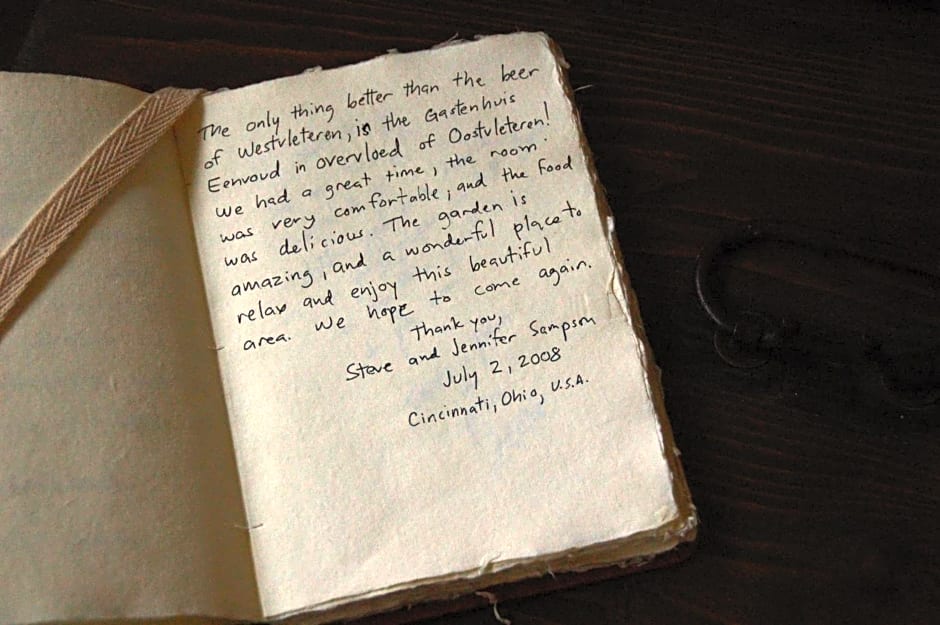 The only thing better than the beer
of Westvleteren, is the Gastenhuis
Eenvoud in overvloed of Oostvleteren!
We had a great time, the room
was very comfortable, and the food
was delicious. The garden is
amazing, and a wonderful place to
relax and enjoy this beautiful
area. We hope to come again.
Thank you,
Steve and Jennifer Sampson
July 2, 2008
Cincinnati, Ohio, U.S.A.